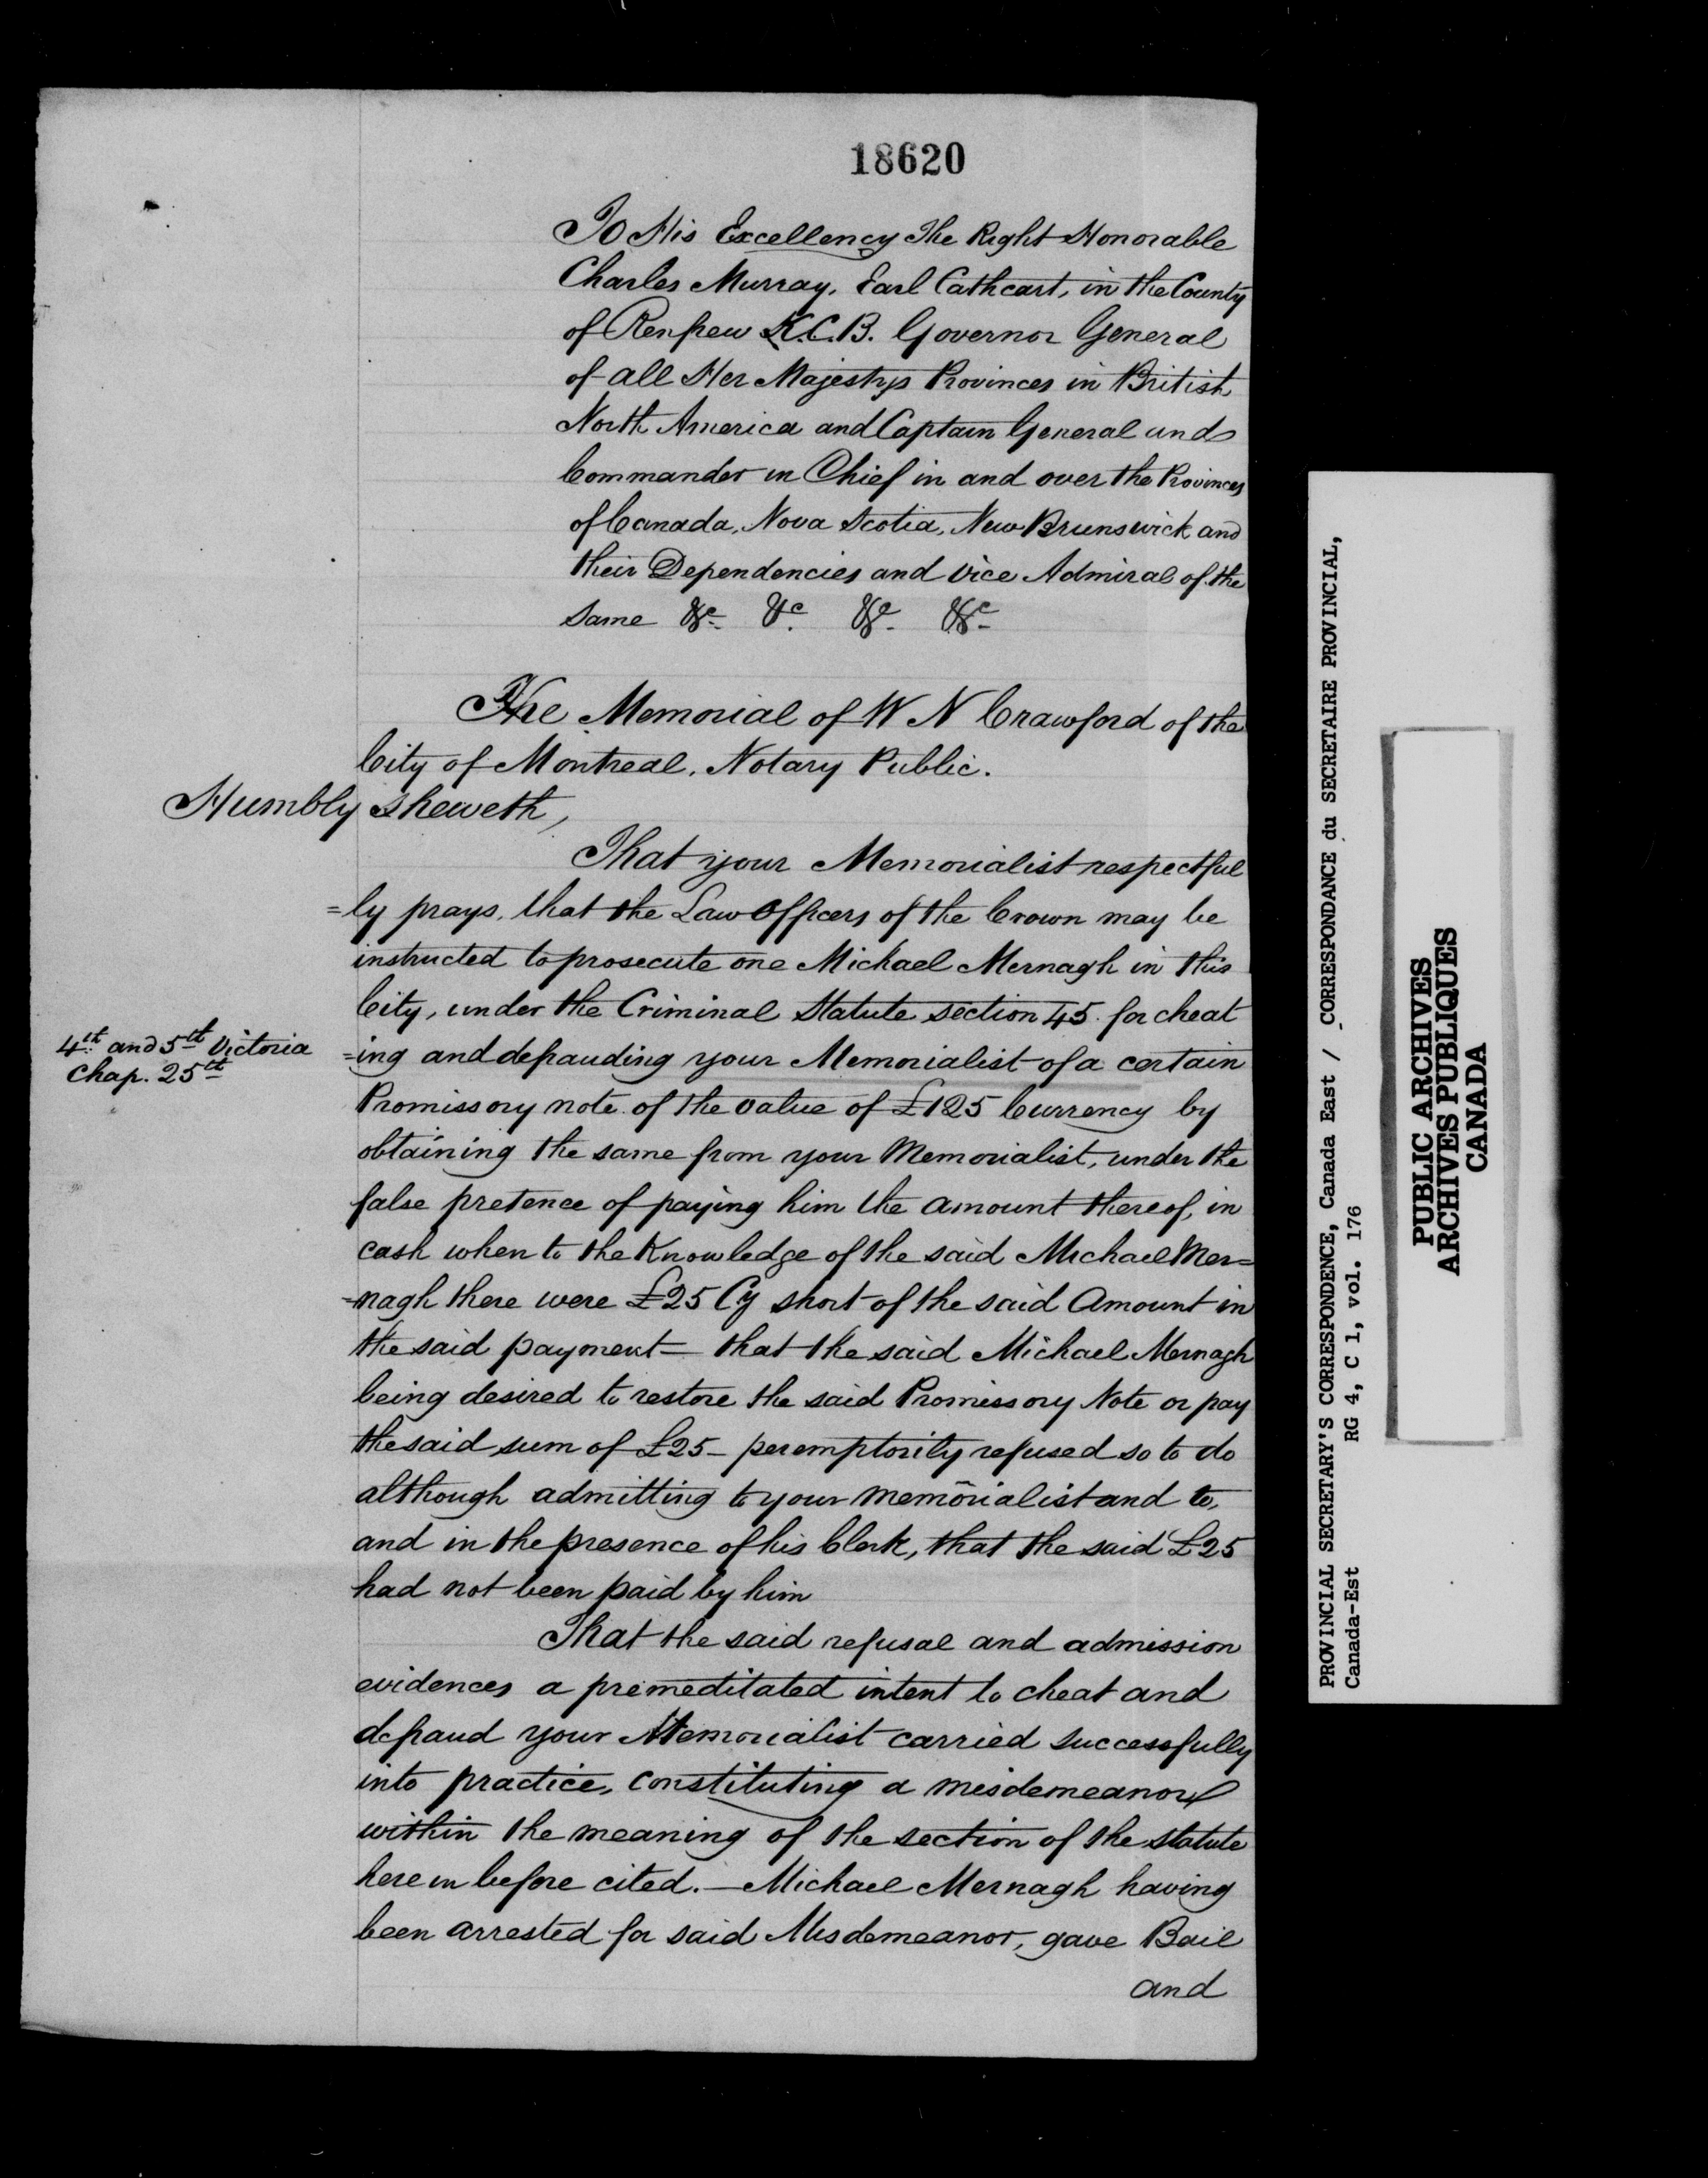 18620
To His Excellency The Right Honorable
Charles Murray, Earl Cathcart, in the County
of Renfrew K.C.B. Governor General
of all Her Majestys Provinces in British
North America and Captain General and
Commander in Chief in and over the Provinces
of Canada, Nova Scotia, New Brunswick and
their Dependencies and Vice Admiral of the
same &c. &c. &c. &c.
The Memorial of W N Crawford of the
City of Montreal, Notary Public.
Humbly sheweth,
That your Memorialist respectful
=ly prays, that the Law Officers of the Crown may be
instructed to prosecute one Michael Mernagh in this
City, under the Criminal Statute section 45. for cheat
4th and 5th Victoria
Chap. 25th
=ing and defrauding your Memorialist of a certain
Promissory note of the value of £125 Currency by
obtaining the same from your Memorialist, under the
false pretence of paying him the amount thereof, in
cash when to the Knowledge of the said Michael Mer=
=nagh there were £25 Cy short of the said Amount in
the said payment — that the said Michael Mernagh
being desired to restore the said Promissory Note or pay
the said sum of £25 - peremptorily refused so to do
although admitting to your memorialist and to,
and in the presence of his Clerk, that the said £25
had not been paid by him
That the said refusal and admission
evidences a premeditated intent to cheat and
defraud your Memorialist carried successfully
into practice, constituting a misdemeanor
within the meaning of the section of the statute
herein before cited. — Michael Mernagh having
been arrested for said Misdemeanor, gave Bail
and
PROVINCIAL SECRETARY'S CORRESPONDENCE, Canada East / CORRESPONDANCE du SECRETAIRE PROVINCIAL,
Canada-Est RG 4, C 1, vol. 176
PUBLIC ARCHIVES
ARCHIVES PUBLIQUES
CANADA